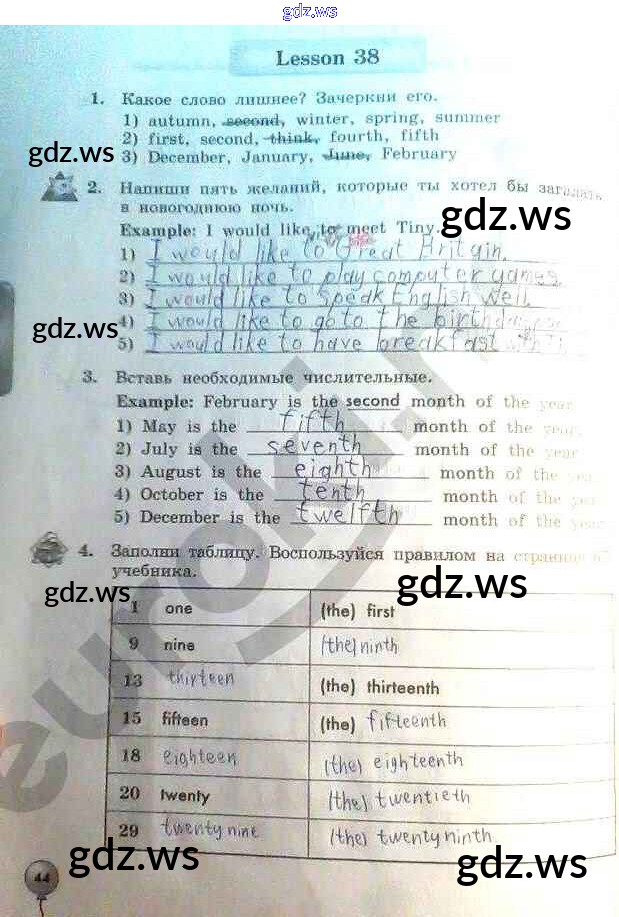 gdz.ws
Lesson 38
1. Какое слово лишнее? Зачеркни его.
1) autumn, second, winter, spring, summer
2) first, second, think, fourth, fifth
gdz.ws
3) December, January, June, February
2. Напиши пять желаний, которые ты хотел бы загадать
в новогоднюю ночь.
gdz.ws
Example: I would like to meet Tiny.
1) I would like to Great Britain.
2) I would like to play computer games
3) I would like to speak English well.
gdz.ws
4) I would like to go to the
5) I would like to have breakfast with
3. Вставь необходимые числительные.
Example: February is the second month of the year
1) May is the fifth month of the year.
2) July is the seventh month of the year
3) August is the eighth month of the year
4) October is the tenth month of the year
5) December is the twelfth month of the year
4. Заполни таблицу. Воспользуйся правилом на странице
учебника.
gdz.ws
gdz.ws
1 one (the) first
9 nine (the) ninth
13 thirteen (the) thirteenth
15 fifteen (the) fifteenth
18 eighteen (the) eighteenth
20 twenty (the) twentieth
29 twenty nine (the) twenty ninth
gdz.ws
gdz.ws
44
euroki